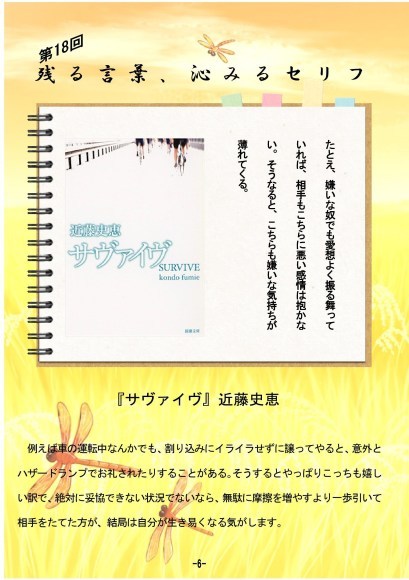 第18回
残る言葉、沁みるセリフ
たとえ、嫌いな奴でも愛想よく振る舞って
いれば、相手もこちらに悪い感情は抱かな
い。そうなると、こちらも嫌いな気持ちが
薄れてくる。
近藤史恵
サヴァイヴ
SURVIVE
kondo fumie
新潮文庫
『サヴァイヴ』近藤史恵
例えば車の運転中なんかでも、割り込みにイライラせずに譲ってやると、意外と
ハザードランプでお礼されたりすることがある。そうするとやっぱりこっちも嬉し
い訳で、絶対に妥協できない状況でないなら、無駄に摩擦を増やすより一歩引いて
相手をたてた方が、結局は自分が生き易くなる気がします。
-6-